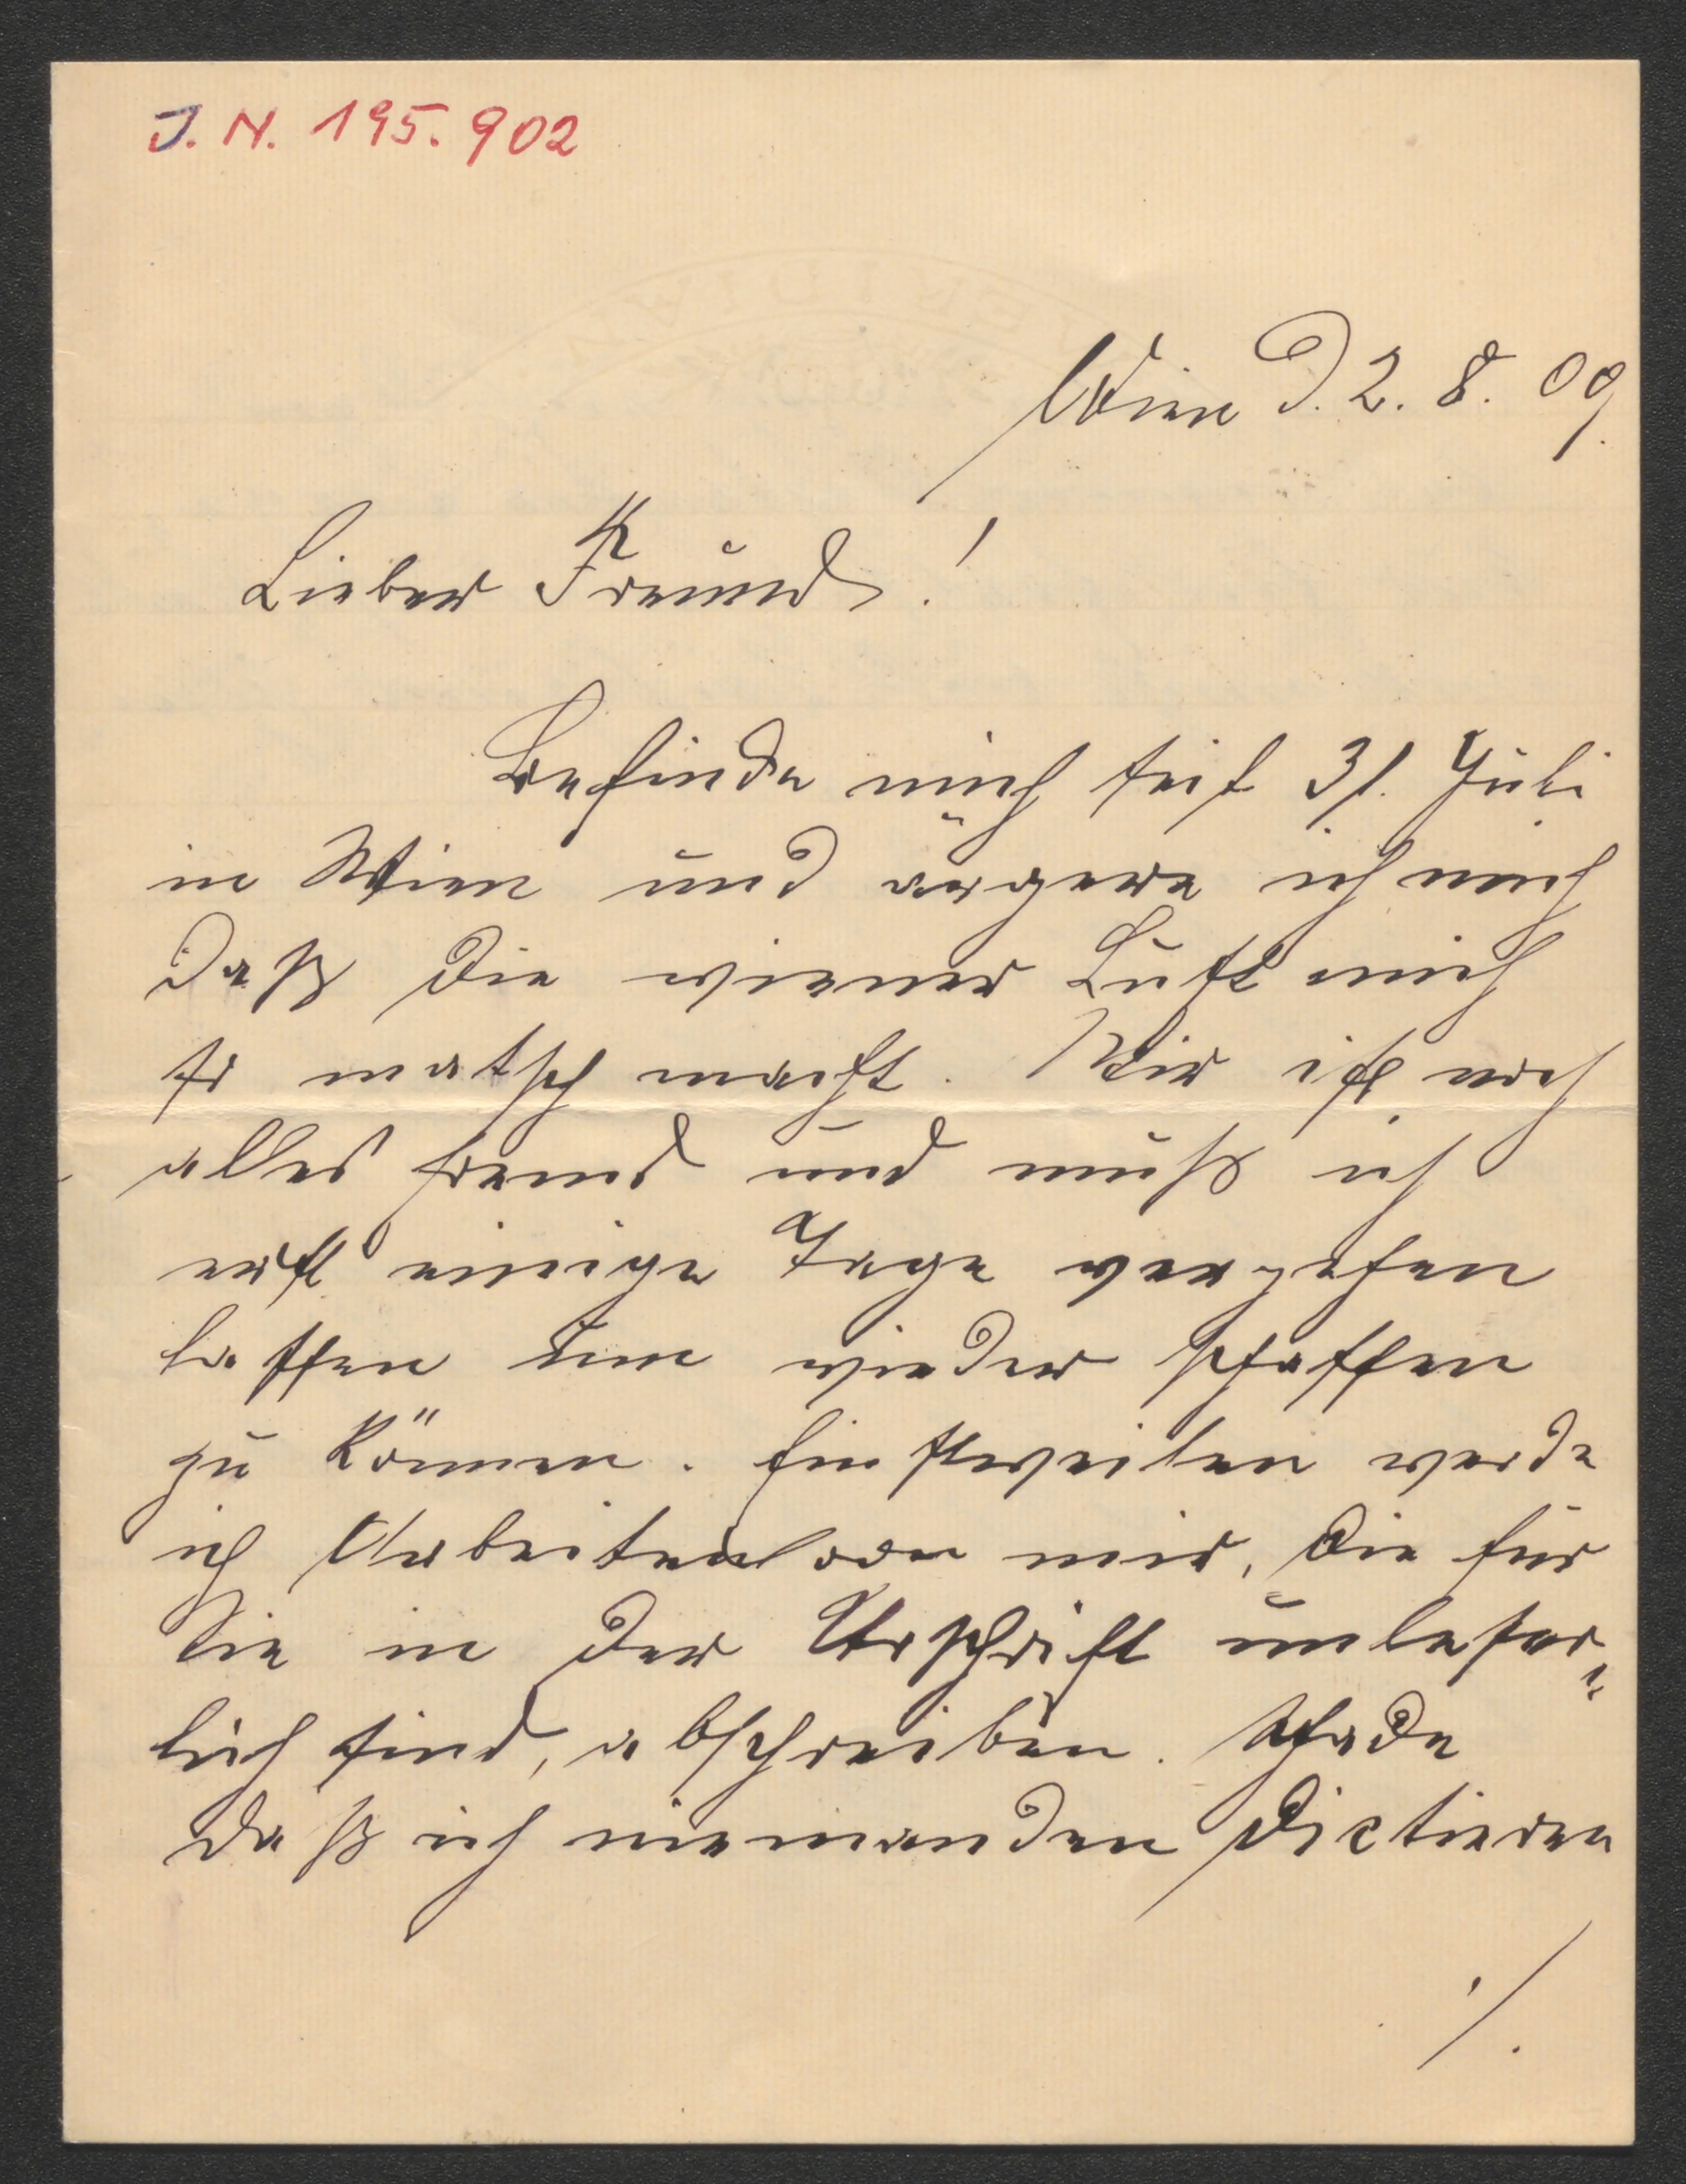 J. N. 195.902
Wien d. 2. 8. 09.
Lieber Freund!
Befinde mich seit 31. Juli
in Wien und ärgere ich mich
daß die wiener Luft mich
so matsch macht. Mir ist noch
alles fremd und muß ich
erst einige Tage vergehen
lassen um wieder schaffen
zu können. Einstweilen werde
ich Arbeiten von mir, die für
Sie in der Urschrift unleser=
lich sind, abschreiben. Schade
daß ich niemanden dictieren
./.